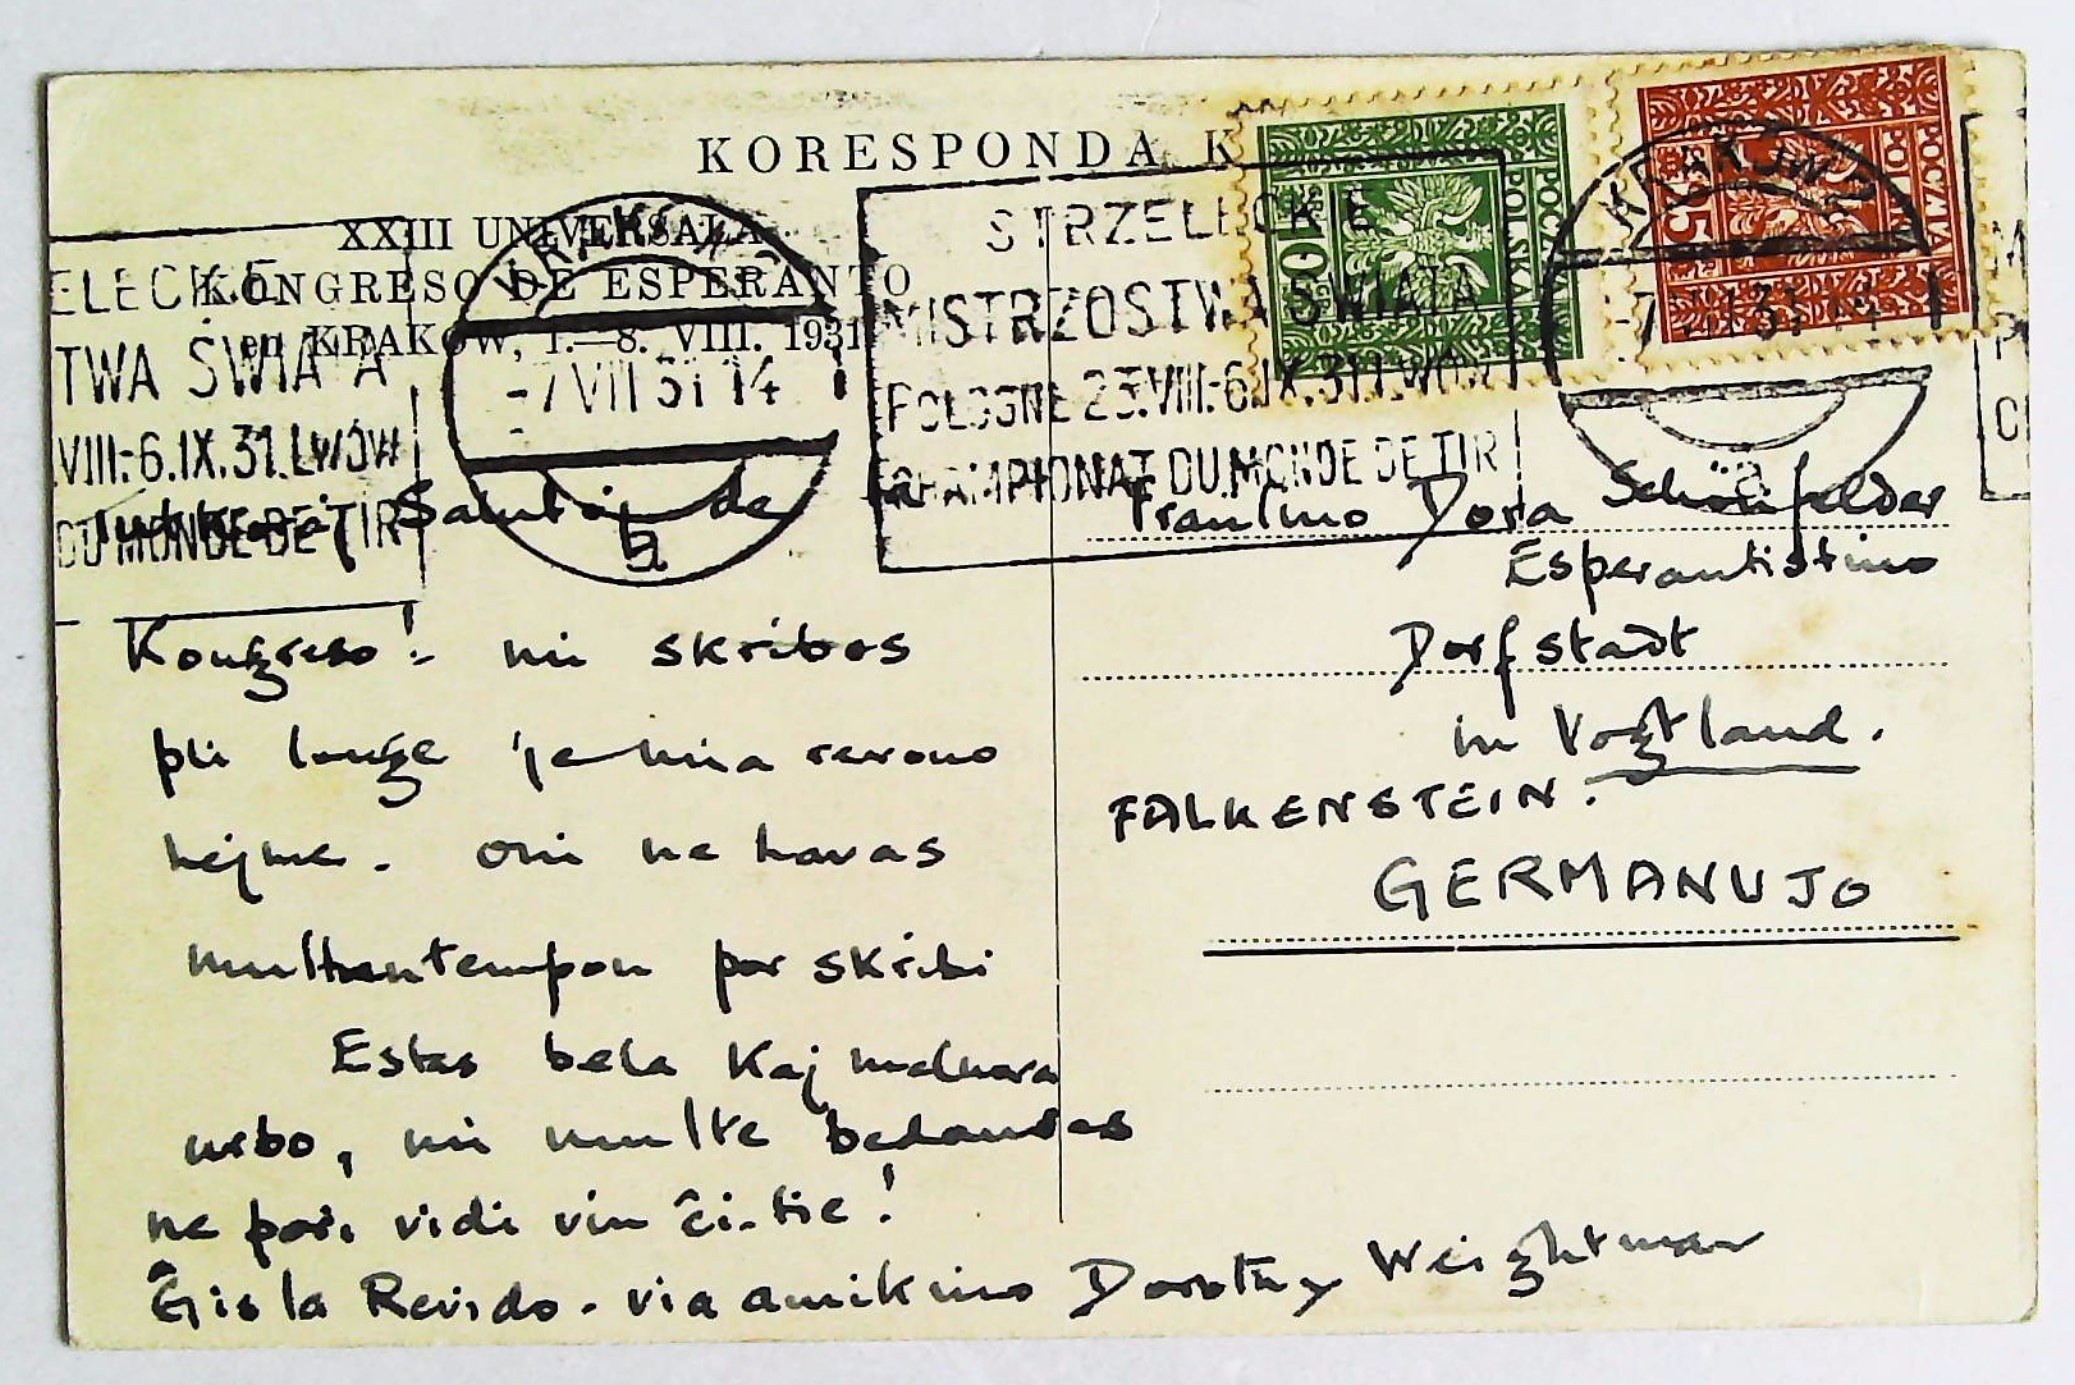 KORESPONDA K
XXIII UNIVERSALA
KONGRESO DE ESPERANTO
en KRAKÓW, 1.—8. VIII. 1931
ELECKIE
TWA ŚWIATA
VIII.-6.IX.31.LWÓW
DU MONDE DE TIR
KRAKÓW
-7 VIII 31 14
b
STRZELECKIE
MISTRZOSTWA ŚWIATA
POLOGNE 23.VIII.-6.IX.31.LWÓW
CHAMPIONAT DU MONDE DE TIR
10
POCZTA
POLSKA
5
POCZTA
KRAKÓW
-7 VIII 31 14
Salutoj de
Kongreso! mi skribos
pli longe je mia reveno
hejme. oni ne havas
multan tempon por skribi
Estas bela kaj malnova
urbo, mi multe bedaŭras
ne povi vidi vin ĉi-tie!
Ĝis la Revido - via amikino Dorothy Weightman
Fraŭlino Dora Schönfelder
Esperantistino
Dorfstadt
in Vogtland.
FALKENSTEIN.
GERMANUJO